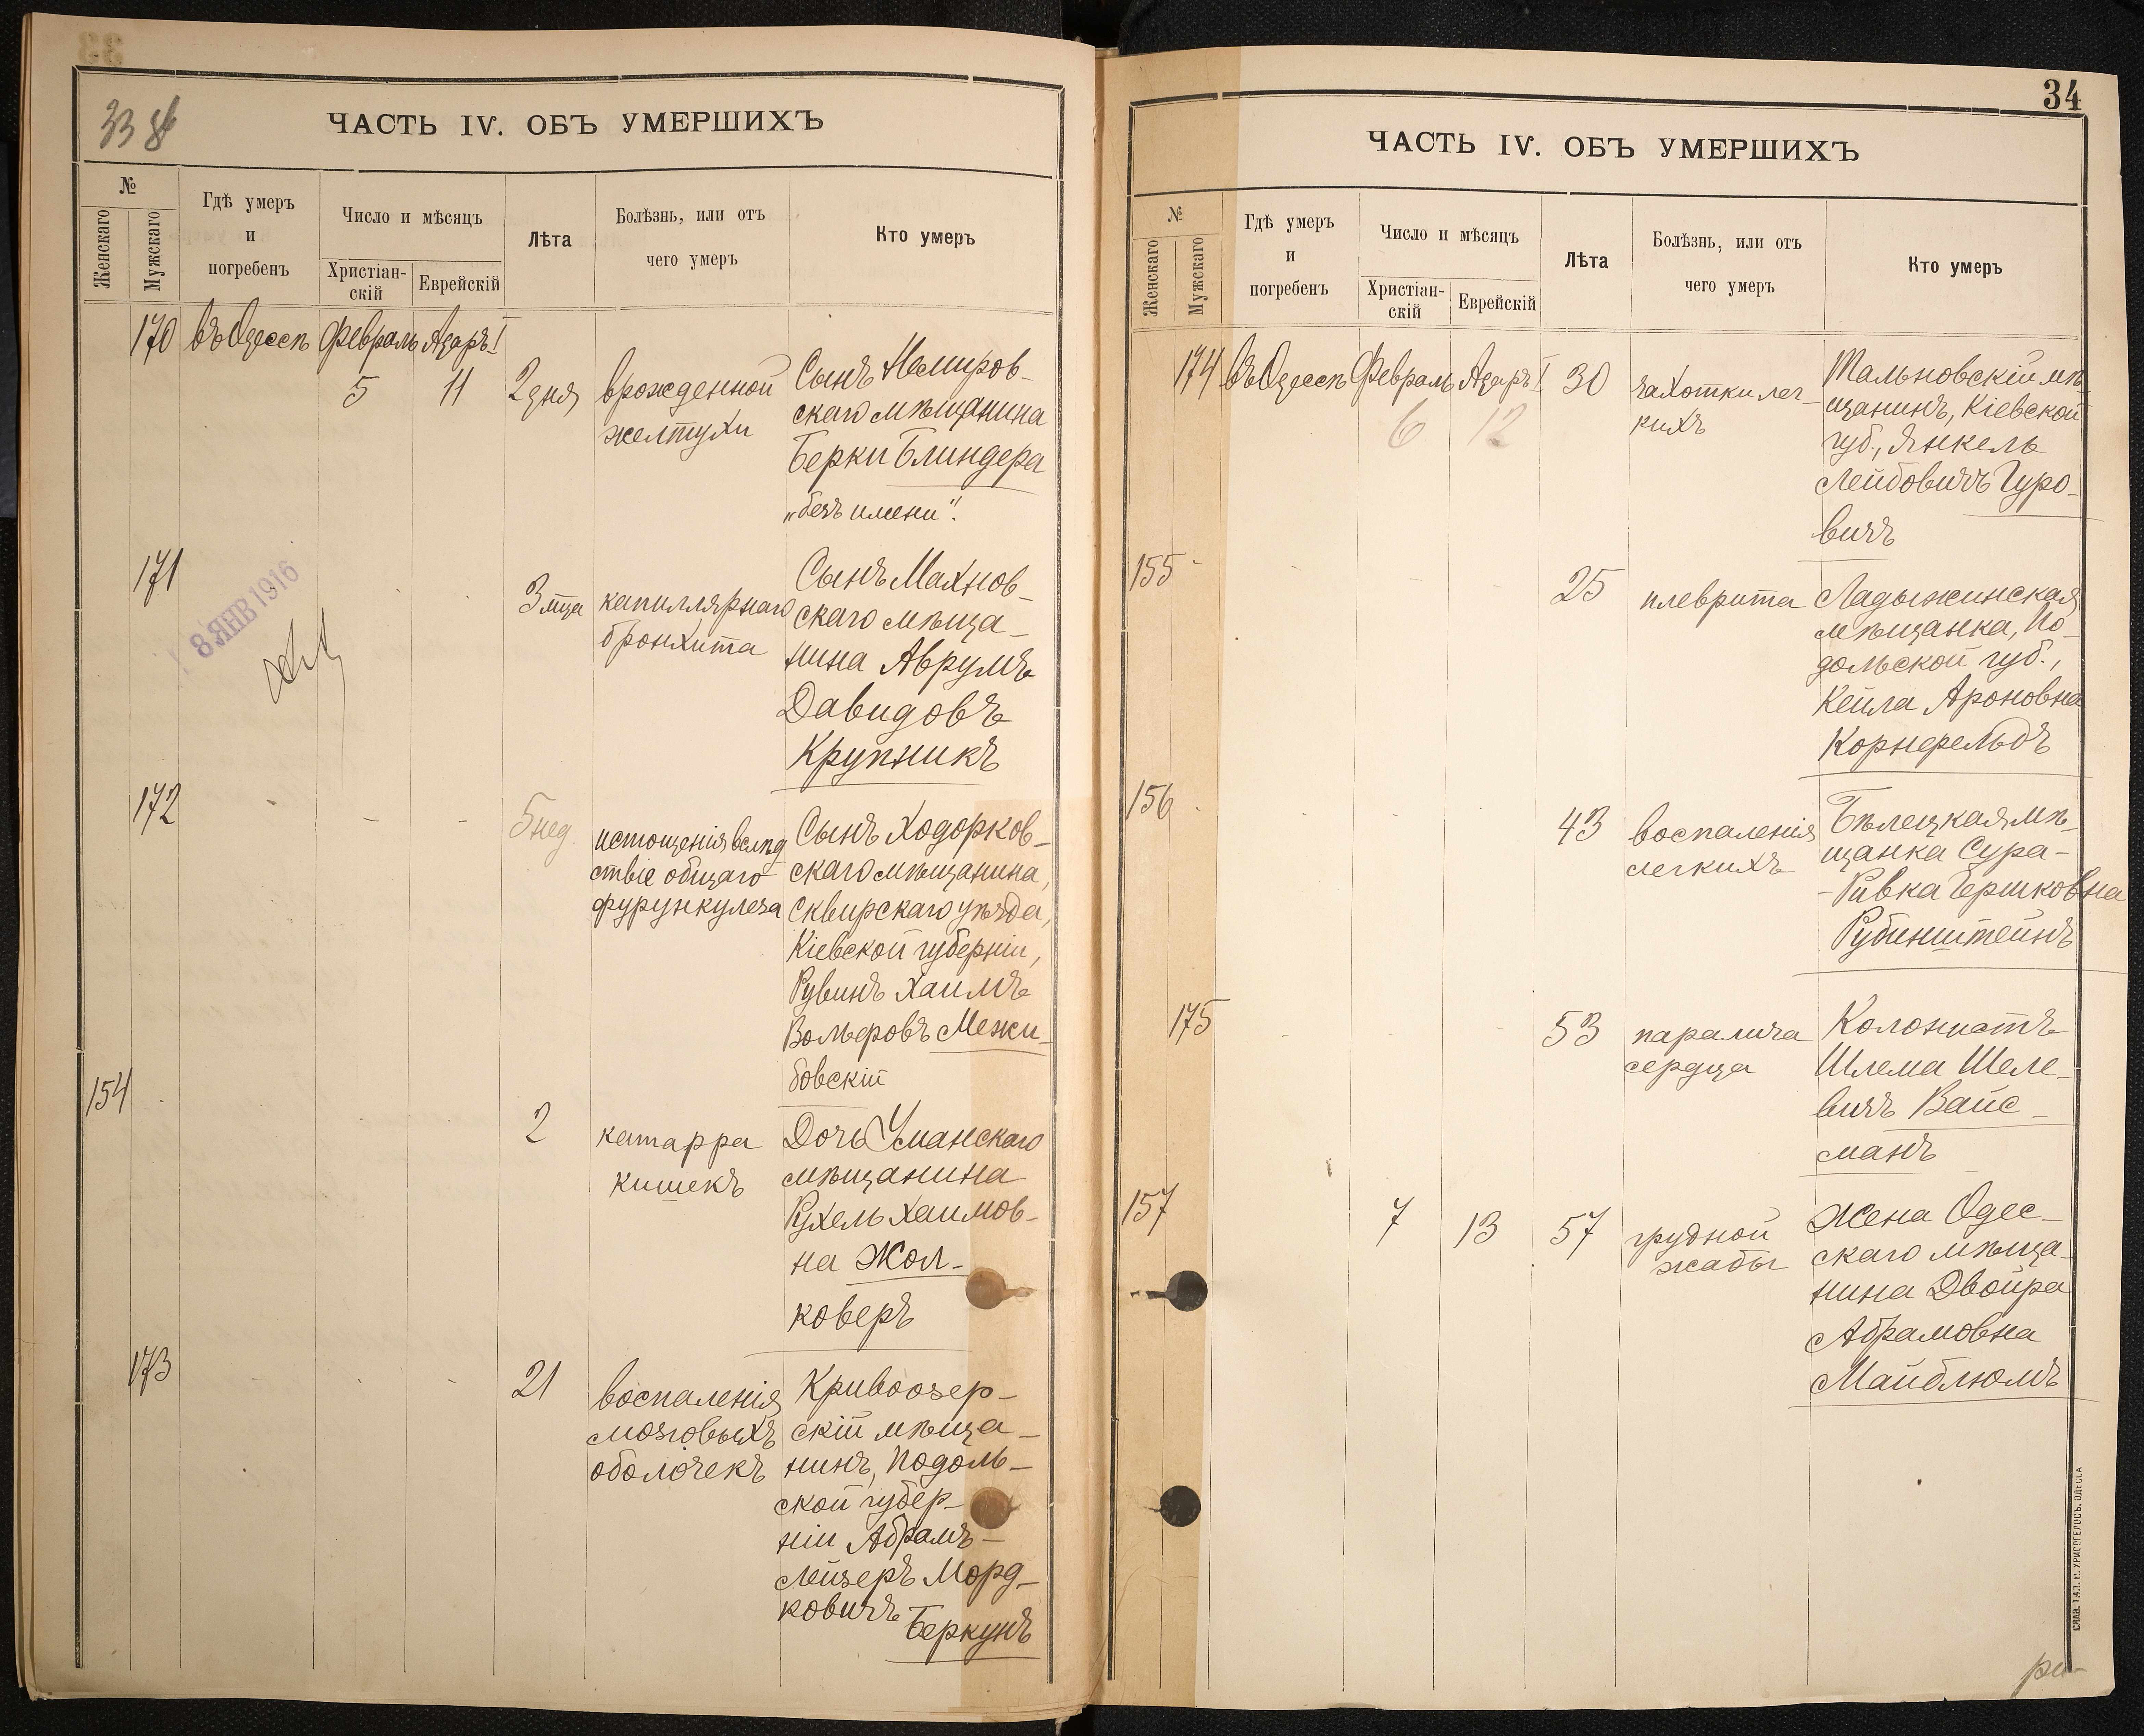 33 об
ЧАСТЬ IV. ОБЪ УМЕРШИХЪ
№
Женскаго
Мужскаго
Гдѣ умеръ
и
погребенъ
Число и мѣсяцъ
Христіан-
скій
Еврейскій
Лѣта
Болѣзнь, или отъ
чего умеръ
Кто умеръ
170 въ Одессѣ Февраль Адаръ I
5 11 2 дня
врожденной
желтухи
Сынъ Немиров-
скаго мѣщанина
Берки Блиндера
„безъ имени".
171
8 ЯНВ 1916
3 мца
капиллярнаго
бронхита
Сынъ Махнов-
скаго мѣща-
нина Аврумъ
Давидовъ
Крупникъ
172
5 нед.
истощенія вслѣд
ствіе общаго
фурункулеза
Сынъ Ходорков-
скаго мѣщанина,
Сквирскаго уѣзда,
Кіевской губерніи,
Рувинъ Хаимъ
Вольфовъ Межи-
бовскій
154
2
катарра
кишекъ
Дочь Уманскаго
мѣщанина
Рухель Хаимов-
на Жол-
коверъ
173
21
воспаленія
мозговыхъ
оболочекъ
Кривоозер-
скій мѣща-
нинъ, Подоль-
ской губер-
ніи Абрамъ-
Лейзеръ Морд-
ковичъ
Беркунъ
34
ЧАСТЬ IV. ОБЪ УМЕРШИХЪ
№
Женскаго
Мужскаго
Гдѣ умеръ
и
погребенъ
Число и мѣсяцъ
Христіан-
скій
Еврейскій
Лѣта
Болѣзнь, или отъ
чего умеръ
Кто умеръ
174 въ Одессѣ Февраль Адаръ I 30
6 12
чахотки лег-
кихъ
Тальновскій мѣ
щанинъ, Кіевской
губ., Янкель
Лейбовичъ Гуро-
вичъ
155
25
плеврита
Ладыжинская
мѣщанка, По-
дольской губ.,
Кейла Ароновна
Корнфельдъ
156
43
воспаленія
легкихъ
Бѣлецкая мѣ-
щанка Сура-
-Ривка Гершковна
Рубинштейнъ
175
53
паралича
сердца
Колонистъ
Шлема Шеле-
вичъ Вайс-
манъ
157
7 13 57
грудной
жабы
Жена Одес-
скаго мѣща-
нина Двойра
Абрамовна
Майблюмъ